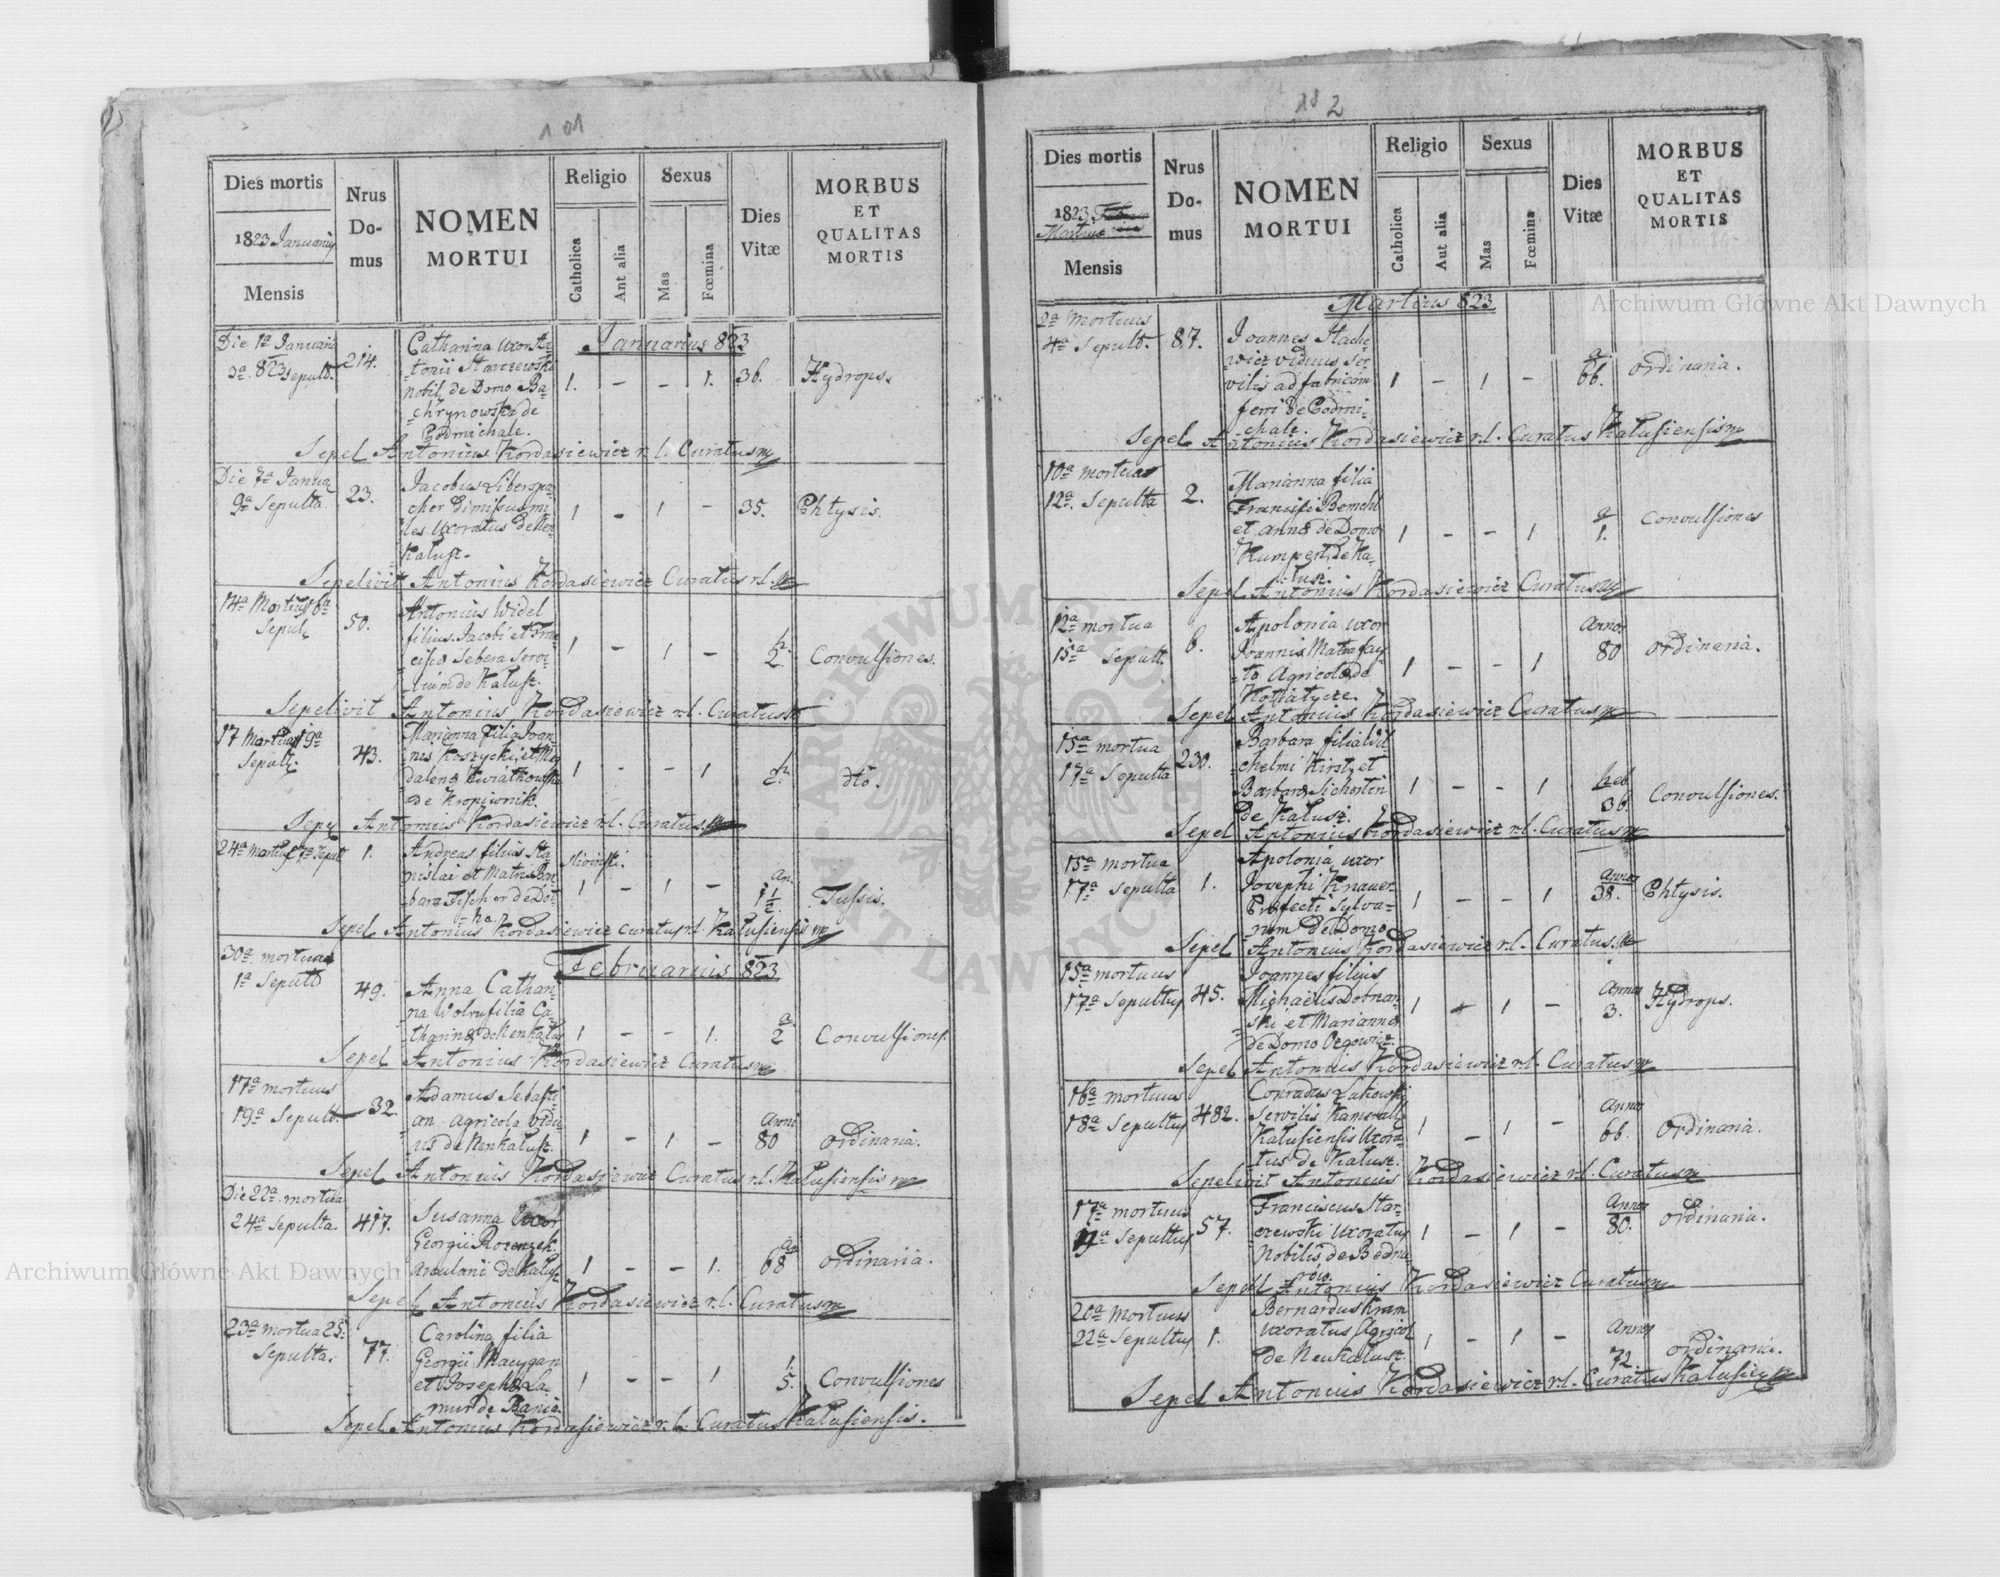 101
Dies mortis
1823 Januarij
Mensis
Nrus
Do-
mus
NOMEN
MORTUI
Religio
Catholica
Aut alia
Sexus
Mas
Fœmina
Dies
Vitæ
MORBUS
ET
QUALITAS
MORTIS
Januarius 823
Die 1a Januarii
3a 823 Sepult.
214.
Catharina uxor An-
-tonii Starzewski
nobil. de Domo Ba-
-chrynowska de
Podmichale.
1. - - 1. 36. Hydrops.
Sepel Antonius Kordasiewicz r.l. Curatus
Die 7a Janua
9a Sepulta
23.
Jacobus Liberspa-
cher dimissus mi-
les uxoratus de Neu
Kalusz.
1 - 1 - 35. Phtysis.
Sepelivit Antonius Kordasiewicz Curatus r.l.
14a Mortuus 16a
Sepult
50.
Antonius Widel
filius Jacobi et Fran
cisca Sebera
de Kalusz.
1 - 1 - Convulsiones.
Sepelivit Antonius Kordasiewicz r.l. Curatus
17 Mortua 19a
Sepult.
43.
Marianna filia Joan
nis Koszycki, et Mag
dalena Kwiatkowska
de Kropiwnik.
1 - - 1 dto.
Antonius Kordasiewicz r.l. Curatus
24a Mortuus 27a Sepult
1.
Andreas filius Sta
nislai et Matris Bar
bara Fischer de Dol
-ha.
1 - 1 - An. 1 1/2 Tussis.
Sepel Antonius Kordasiewicz Curatus r.l. Kalusiensis
Februarius 823
30a mortua
1a Sepult
49.
Anna Cathari
na filia Ca-
tharina de Neukalus
1 - - 1. a 2 Convulsiones.
Sepel Antonius Kordasiewicz Curatus
17a mortuus
19a Sepult.
32.
Adamus Sebasti
an Agricola vidu
us de Neukalusz.
1 - 1 - Anni 80 ordinaria.
Sepel Antonius Kordasiewicz Curatus r.l. Kalusiensis
Die 22a mortua
24a Sepulta.
417.
Susanna Uxor
Georgii
de Kalusz
1 - - 1. An 68 ordinaria.
Sepel Antonius Kordasiewicz r.l. Curatus
23a mortua 25.
Sepulta.
77.
Carolina filia
Georgii Macygan
et Josepha La-
mur de Bania.
1 - - 1 1/5. Convulsiones
Sepel Antonius Kordasiewicz r.l. Curatus Kalusiensis.
2
Dies mortis
1823
Martius
Mensis
Nrus
Do-
mus
NOMEN
MORTUI
Religio
Catholica
Aut alia
Sexus
Mas
Fœmina
Dies
Vitæ
MORBUS
ET
QUALITAS
MORTIS
Martius 823
2a Mortuus
4a Sepult.
87.
Joannes Stache
wicz viduus ser
vilis ad fabricam
ferri de Podmi-
chale.
1 - 1 - a 66. ordinaria.
Sepel Antonius Kordasiewicz r.l. Curatus Kalusiensis
10a mortua
12a Sepulta
2.
Marianna filia
Francisci
et Anna de Domo
Kumpert, de Ka-
lusz.
1 - - 1 a 1. Convulsiones
Sepel Antonius Kordasiewicz Curatus
12a mortua
15a Sepult.
6.
Apolonia uxor
Joannis
Agricola de
Kopiatycze.
1 - - 1 Annor 80 ordinaria.
Sepel Antonius Kordasiewicz Curatus
15a mortua
17a Sepulta
230.
Barbara filia Wil
-chelmi Kirst, et
Barbara Sichertin
De Kalusz.
1 - - 1 heb 36. Convulsiones.
Sepel Antonius Kordasiewicz r.l. Curatus
15a mortua
17a Sepulta
1.
Apolonia uxor
Josephi Knauer
Prefecti Sylva-
rum de Domo
1 - - 1 Annor 38. Phtysis.
Sepel Antonius Kordasiewicz r.l. Curatus
15a mortuus
17a Sepultus
45.
Joannes filius
Michaelis Dobran
ski et Marianna
de Domo Ozgowicz.
1 - 1 - Annor 3. Hydrops.
Sepel Antonius Kordasiewicz r.l. Curatus
16a mortuus
18a Sepultus
482.
Conradus
Servilis Kameral
Kalusiensis Uxora-
tus de Kalusz.
1 - 1 - Annor 66. ordinaria.
Sepelivit Antonius Kordasiewicz r.l. Curatus
17a mortuus
19a Sepultus
57.
Franciscus Star-
czewski Uxoratus
Nobilis de Bedna
row.
1 - 1 - Annor 80. ordinaria.
Sepel Antonius Kordasiewicz Curatus
20a Mortuus
22a Sepultus
1.
Bernardus Kram
uxoratus Agricol
de Neukalusz.
1 - 1 - Annor 72. ordinaria.
Sepel Antonius Kordasiewicz r.l. Curatus Kalusien
Archiwum Główne Akt Dawnych
Archiwum Główne Akt Dawnych
ARCHIWUM GŁÓWNE AKT DAWNYCH